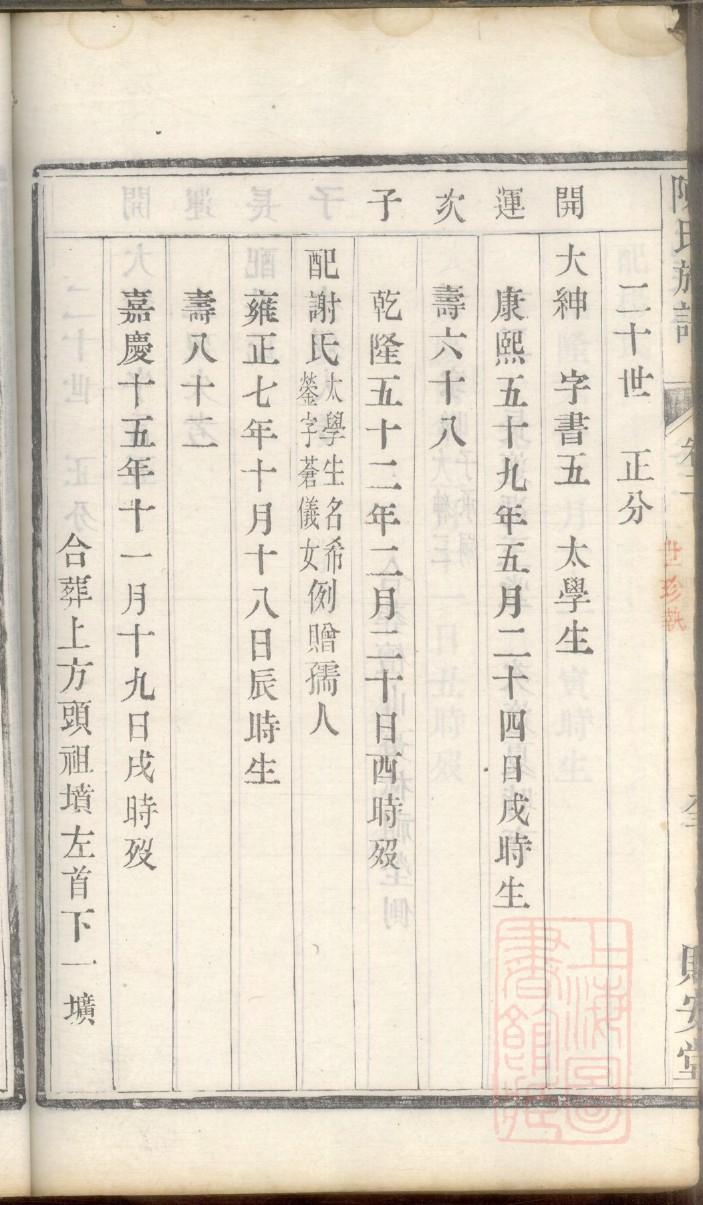 陳氏族譜
卷二
世珍執
貽安堂
開運次子
二十世　正分
大紳　字書五　太學生
康熙五十九年五月二十四日戌時生
壽六十八
乾隆五十二年二月二十日酉時歿
配謝氏太學生名希鎣字蒼儀女例贈孺人
雍正七年十月十八日辰時生
壽八十二
嘉慶十五年十一月十九日戌時歿
合葬上方頭祖墳左首下一壙
上海圖書館藏